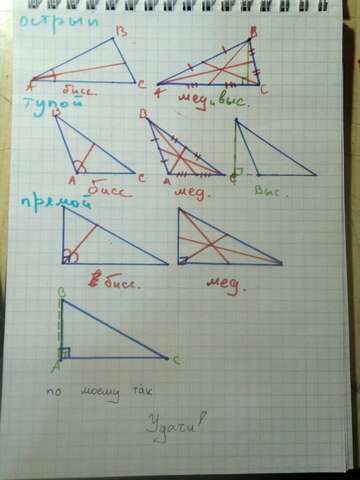 острый
B
A
бисс.
C
B
A
мед,выс.
C
тупой
B
A
бисс
C
B
A
мед.
C
C
выс.
прямой
бисс.
мед.
B
A
C
по моему так
Удачи!